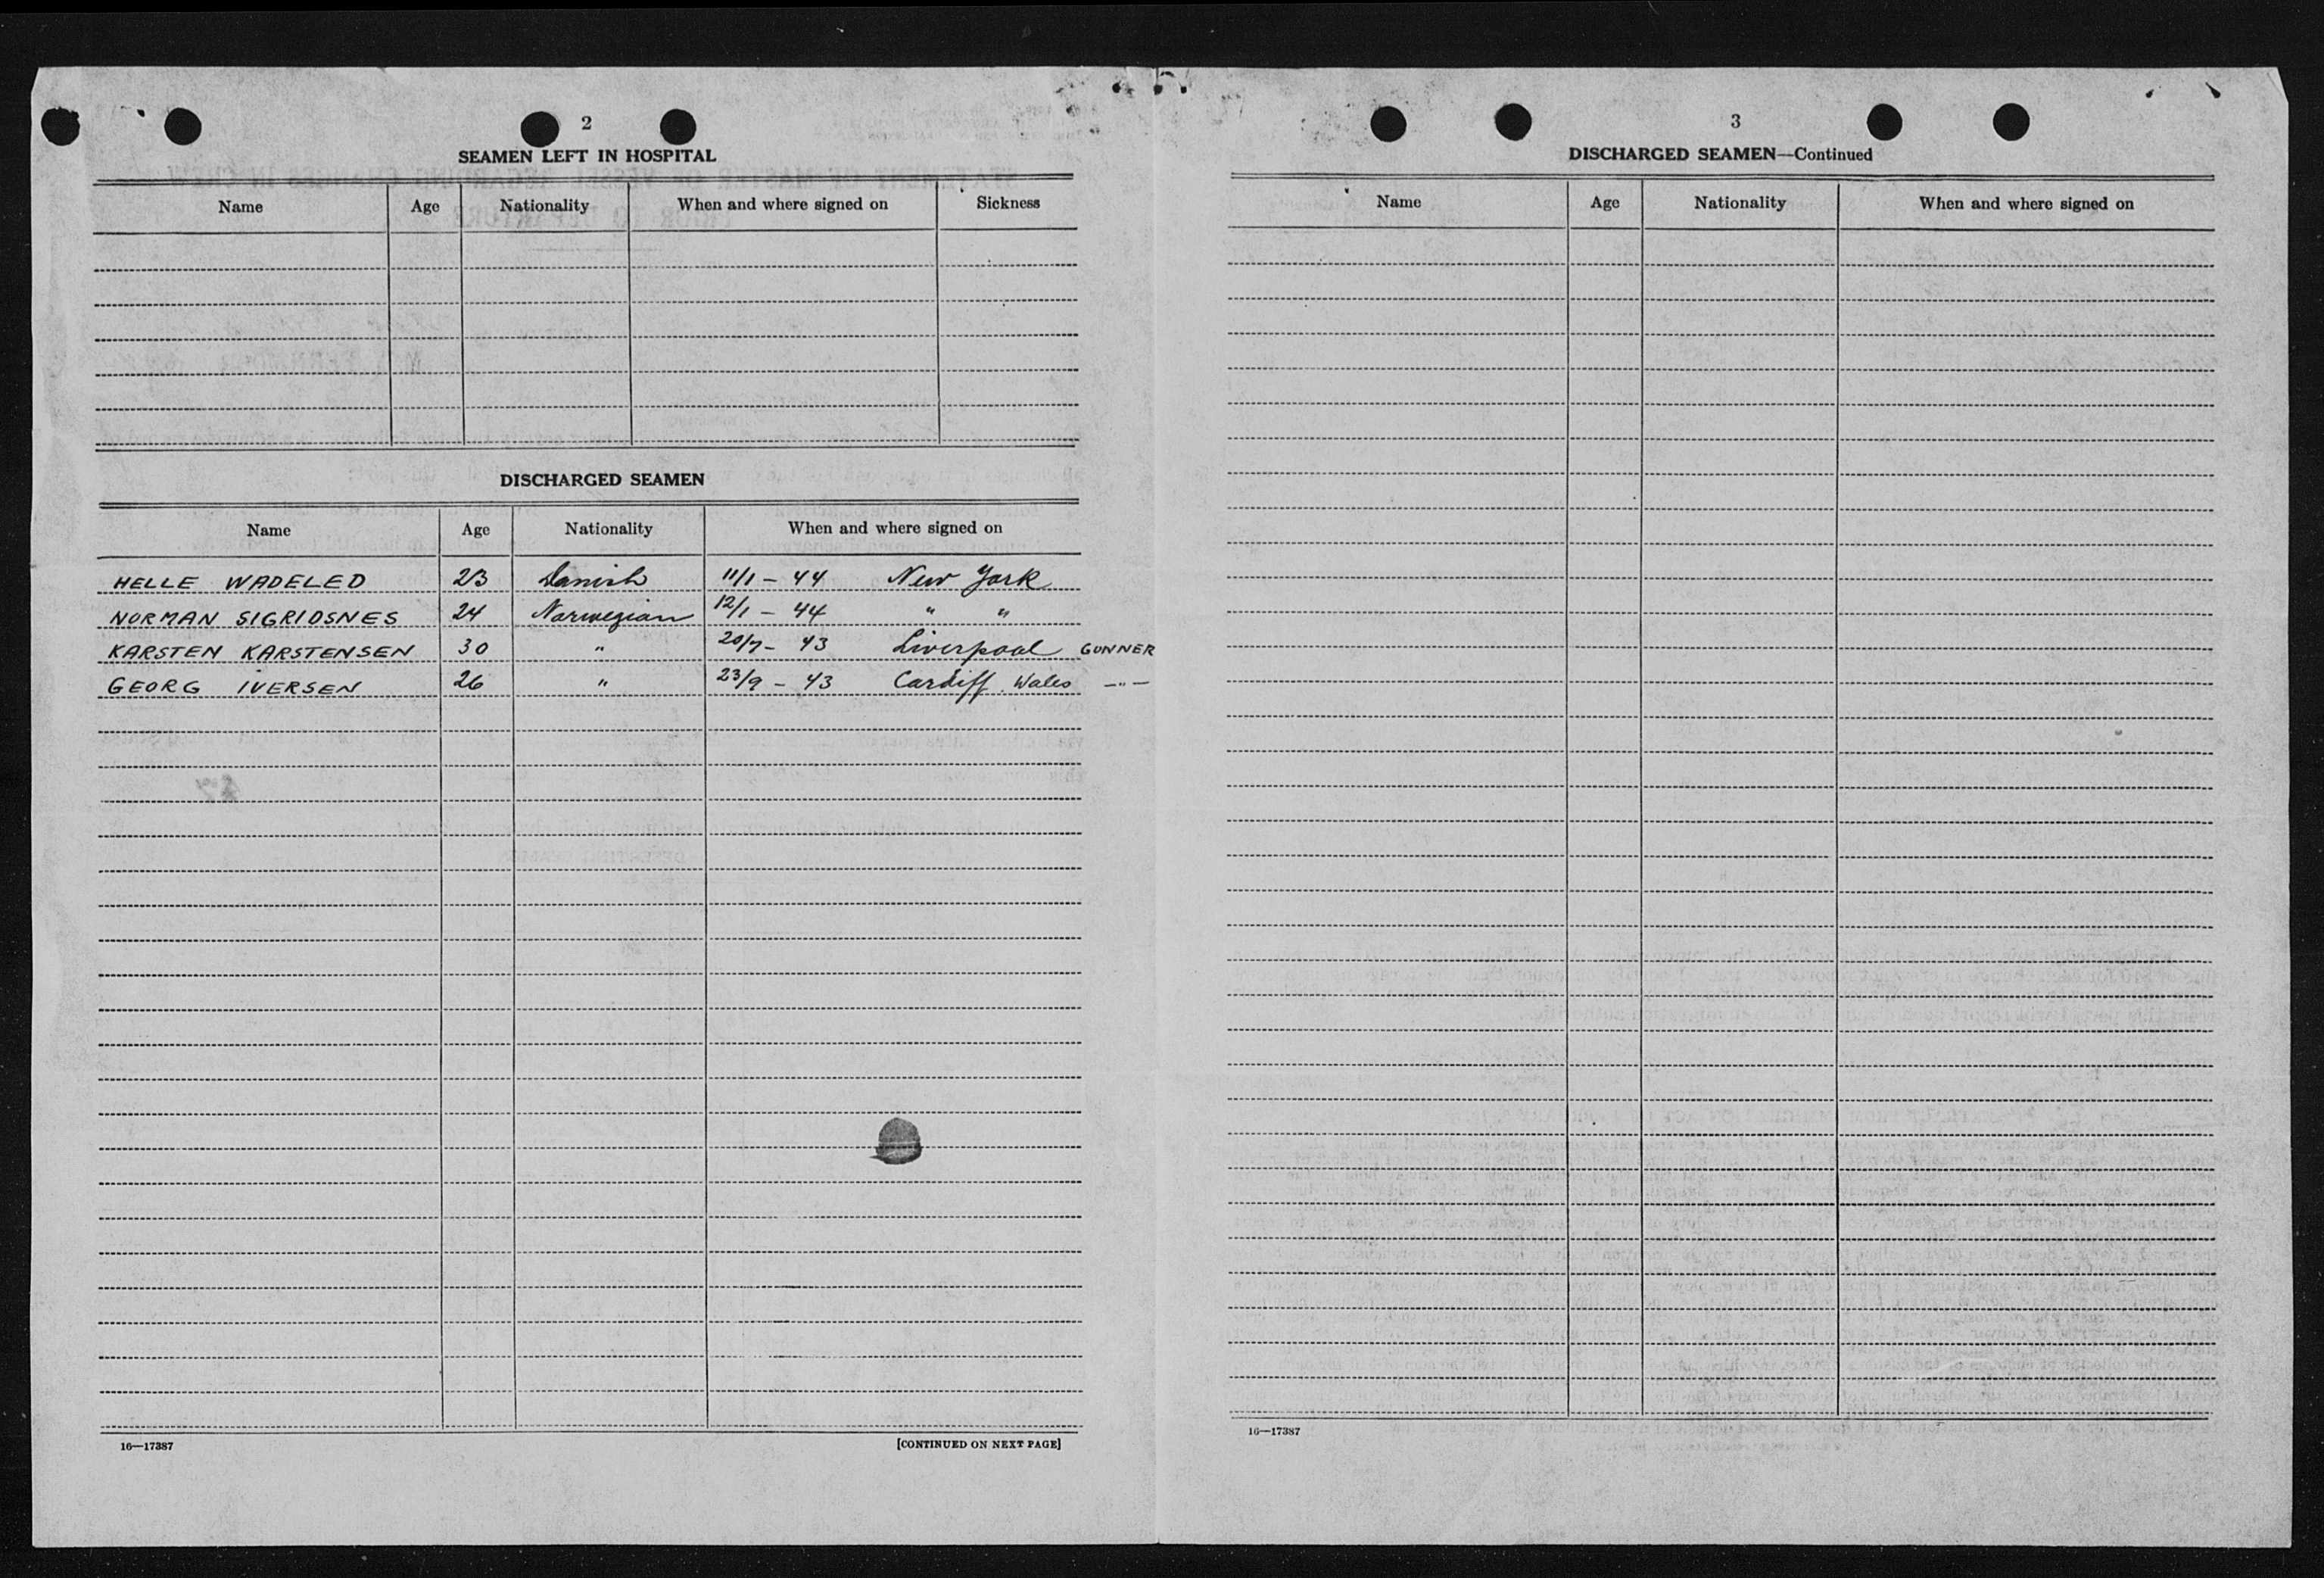 2
SEAMEN LEFT IN HOSPITAL
Name Age Nationality When and where signed on Sickness
DISCHARGED SEAMEN
Name Age Nationality When and where signed on
HELLE WADELED 23 Danish 11/1 - 44 New York
NORMAN SIGRIDSNES 24 Norwegian 12/1 - 44 " "
KARSTEN KARSTENSEN 30 " 20/7 - 43 Liverpool GUNNER
GEORG IVERSEN 26 " 23/9 - 43 Cardiff. Wales -"-
16—17387 [CONTINUED ON NEXT PAGE]
3
DISCHARGED SEAMEN—Continued
Name Age Nationality When and where signed on
16—17387